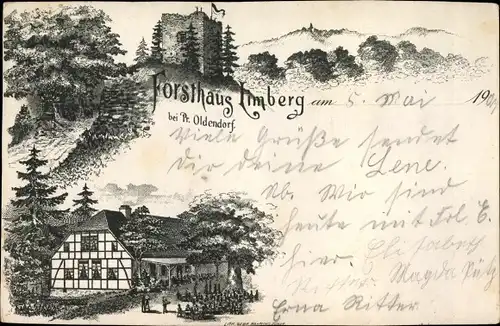 Forsthaus Limberg am 5. Mai 190
bei Pr. Oldendorf.
Viele Grüße sendet
dir deine Lene.
Nb. Wir sind
heute mit Frl. E.
hier. Elisabeth
Ritter. Magda
Erna Ritter